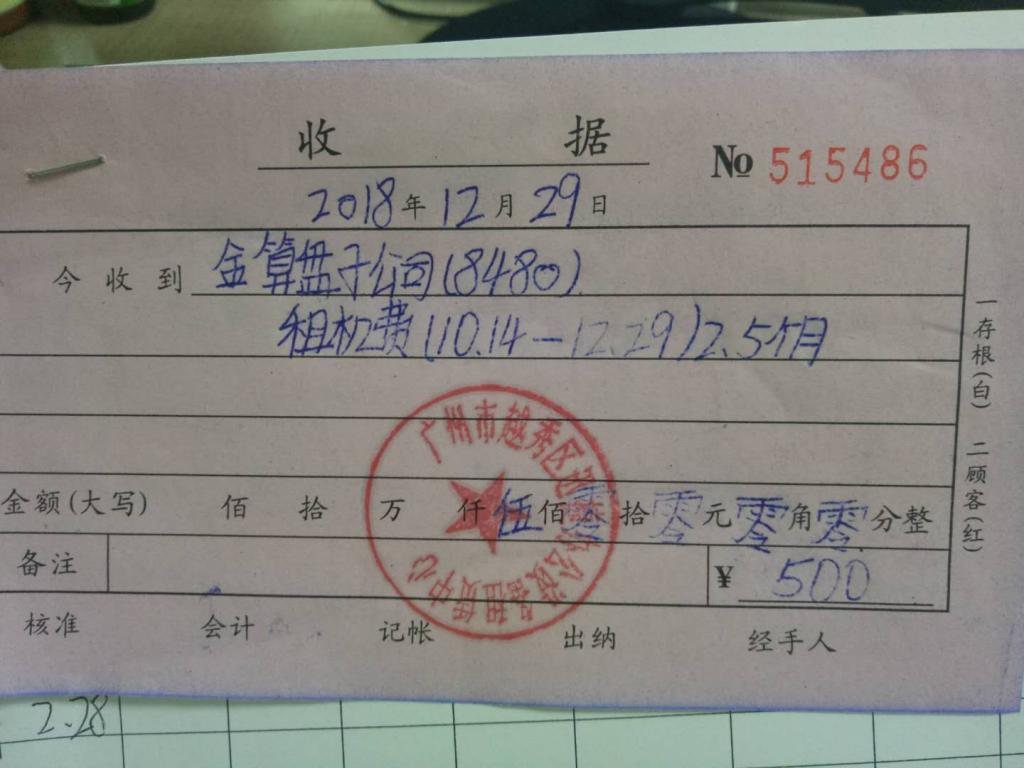 收 据
No 515486
2018年12月29日
今收到 金算盘子公司(8480)
租机费(10.14-12.29)2.5个月
金额(大写) 佰 拾 万 仟 伍 佰 零 拾 零 元 零 角 零 分整
备注 ¥ 500
核准 会计 记帐 出纳 经手人
一存根(白) 二顾客(红)
广州市越秀区 办公设备租赁中心
2.28